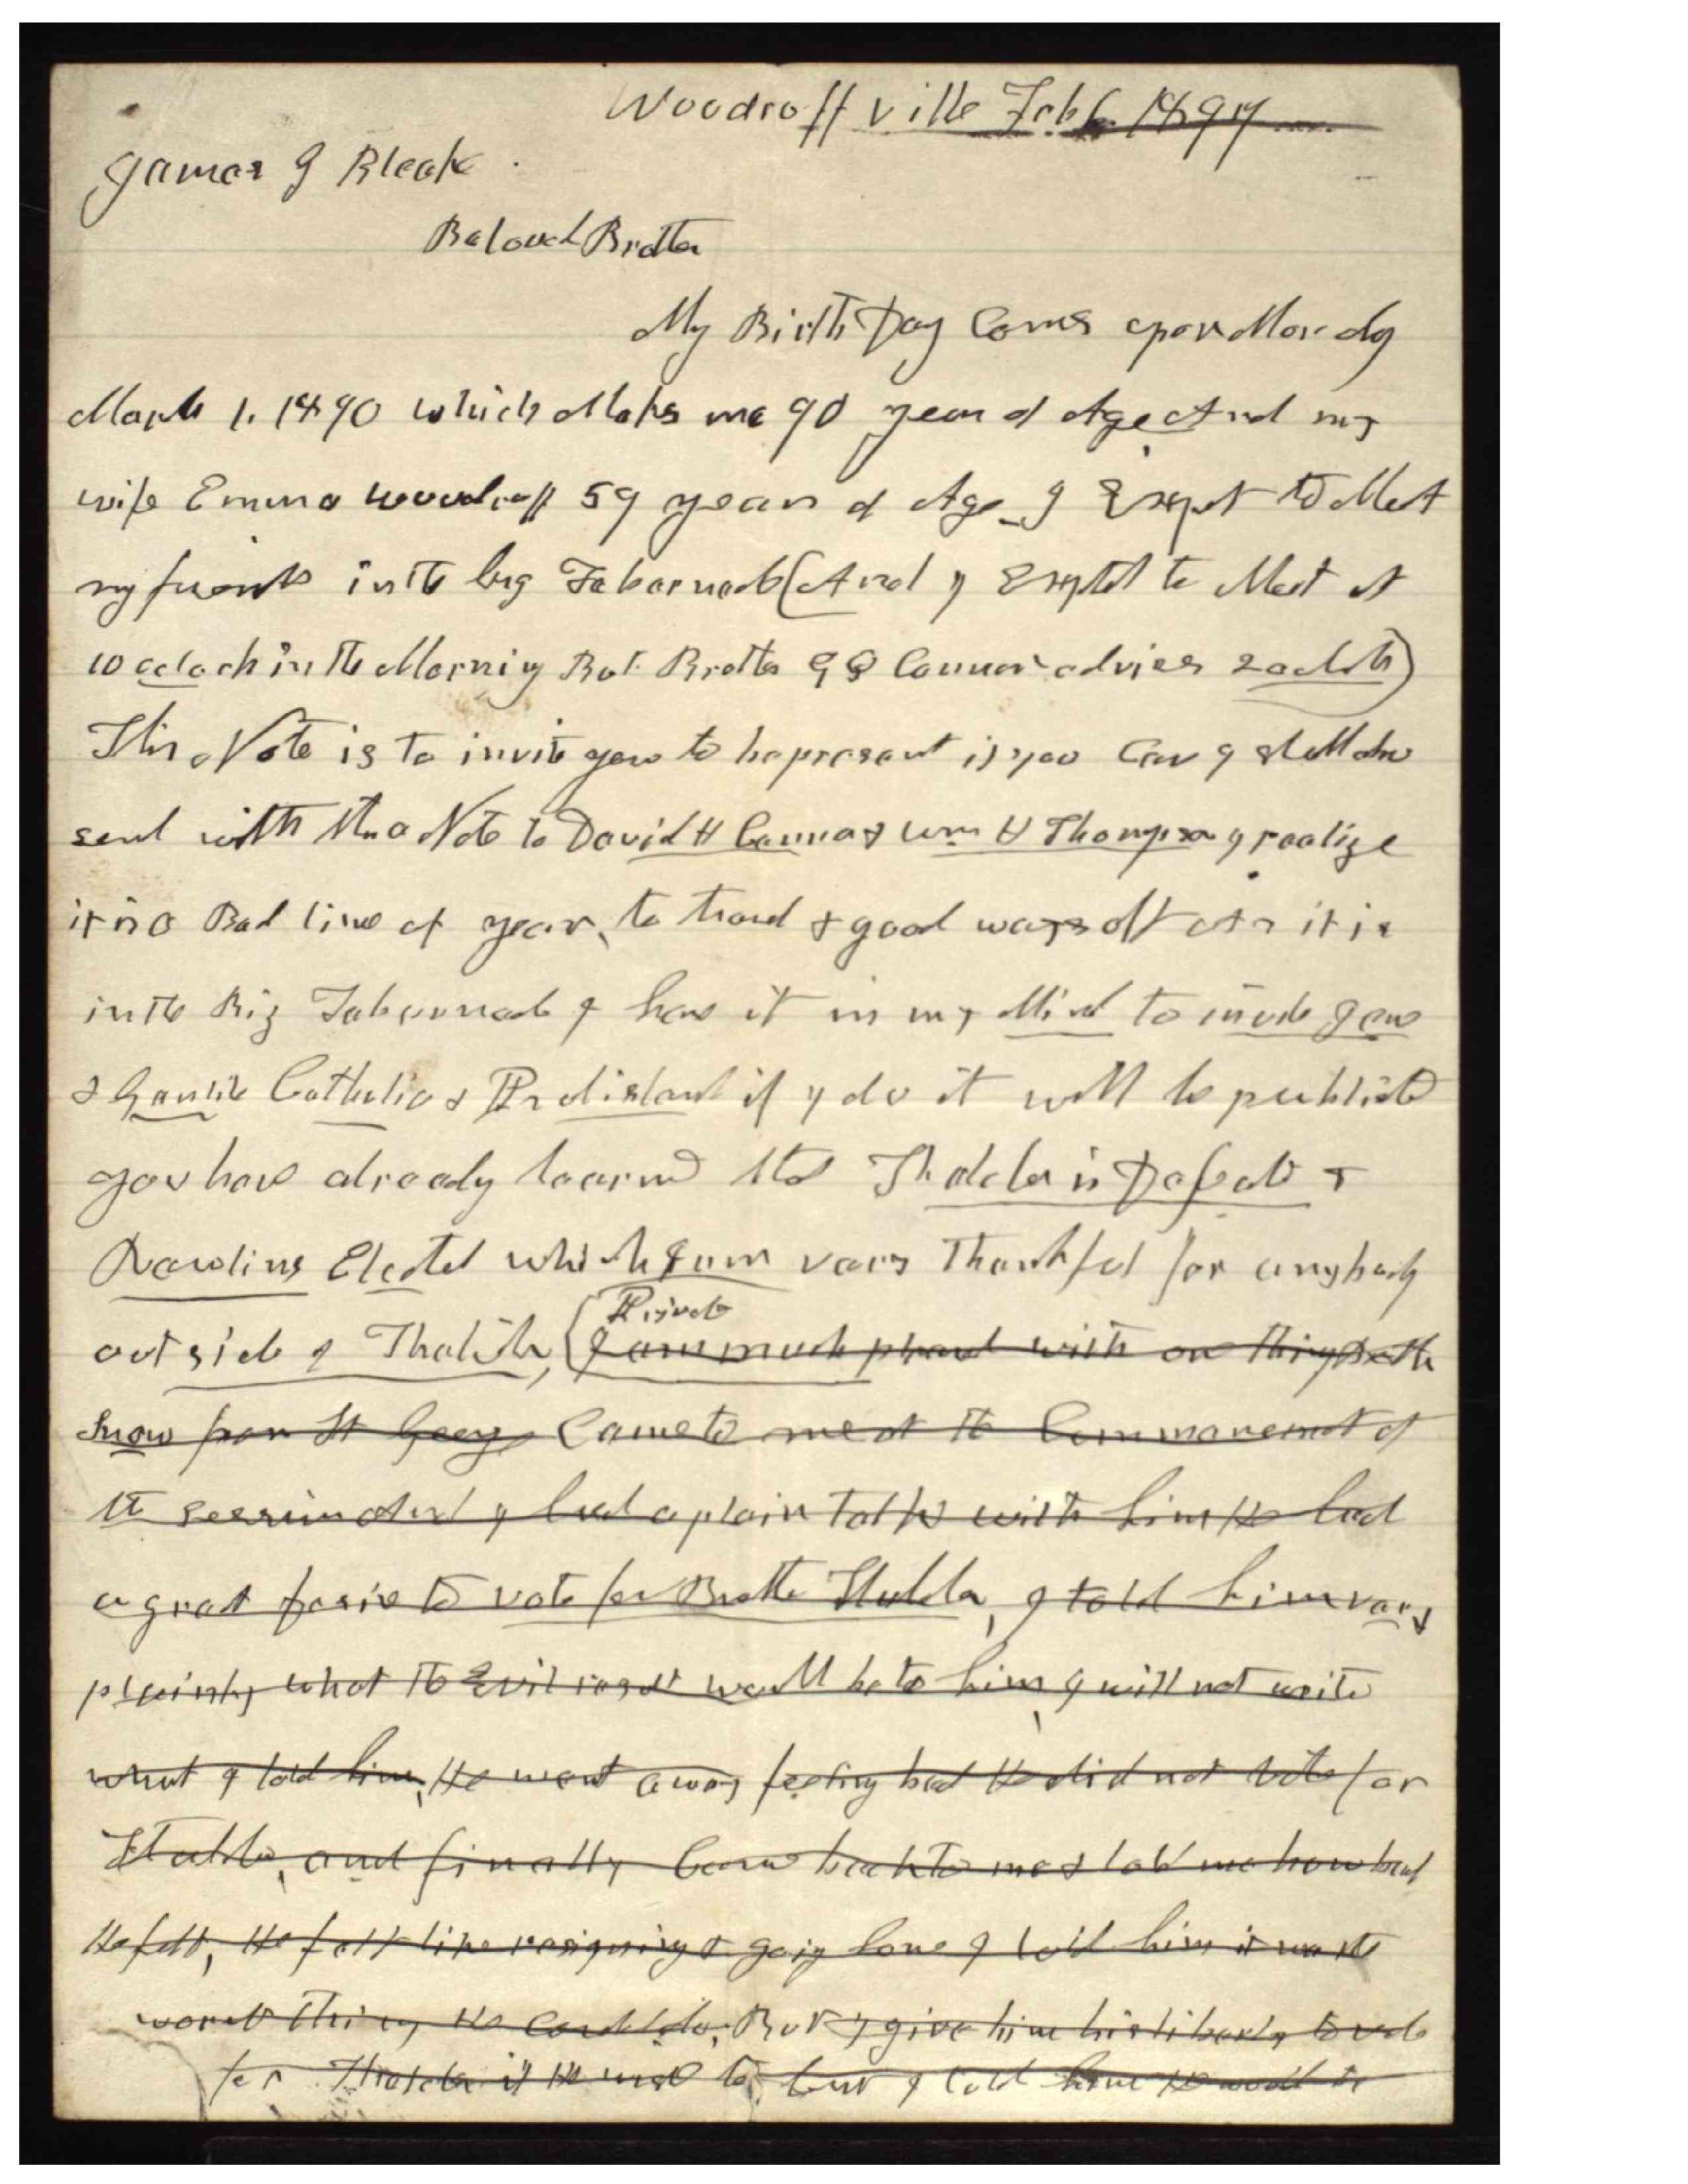 Woodroff ville Feb 6 1897
James G Bleak
Beloved Brother
My Birth Day Coms upon Monday
March 1. 1890 which Maks me 90 year of Age And my
wife Emma Woodruff 59 years of Age I Expet to Meet
my friends in the big Tabernacle (And I Expted to Meet at
10 oclock in the Morning But Brother G Q Cannon advises 2 oclok)
This Note is to invite you to be present if you Can I shall also
send with this a Note to David H Cannon & Wm H Thompson I realize
it is a Bad time of year, to travel & good ways off As it is
in the Big Tabernacle I have it in my Mind to invite Jew
& Gentile Catholic & Protistant if I do it will be publishd
you have already learnd that Thatcher is Defeated &
Rawlins Elected which I am vary Thankful for anybody
outside of Thatcher, (
Private
I am much pleased with one thing Broth
Snow from St George Came to me at the Commencment of
the session And I had a plain talk with him He had
a great desire to vote for Brother Thatcher, I told him vary
plainly what the Evil result would be to him, I will not write
what I told him, He went away feeling bad He did not vote for
Thatcher, and finally Came back to me & told me how bad
He felt, He felt like resigning & going home I told him it was the
worst thing He could do, But I give him his liberty to vote
for Thatcher if He wished to, but I told him He would be